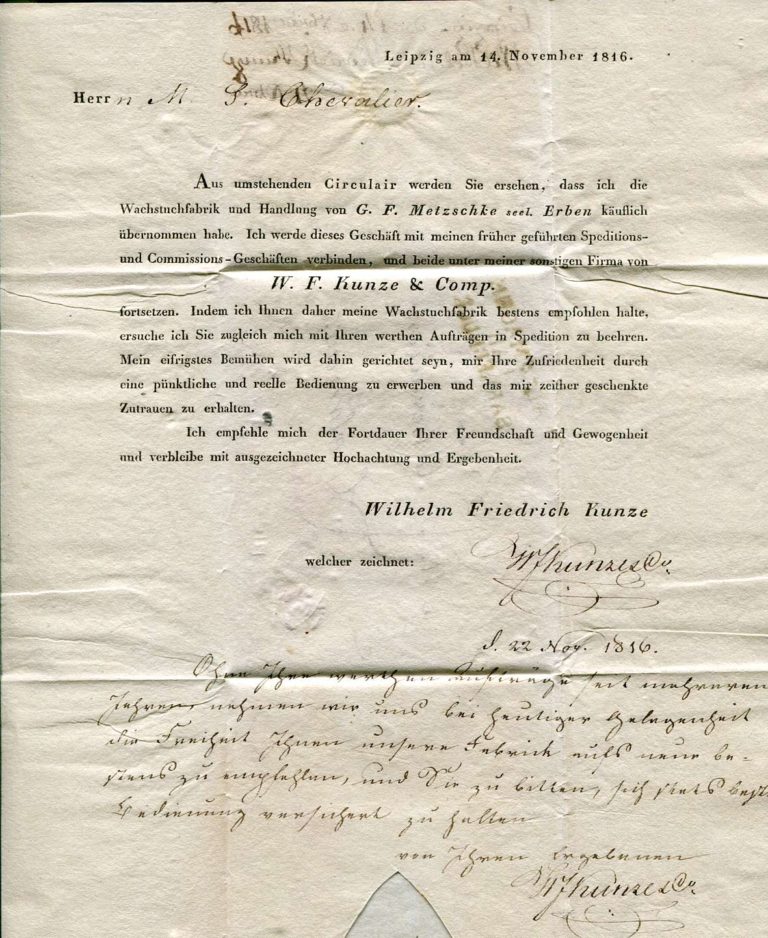 Leipzig am 14. November 1816.
Herrn M. S. Chevalier.
Aus umstehenden Circulair werden Sie ersehen, dass ich die
Wachstuchfabrik und Handlung von G. F. Metzschke seel. Erben käuflich
übernommen habe. Ich werde dieses Geschäft mit meinen früher geführten Speditions-
und Commissions-Geschäften verbinden, und beide unter meiner sonstigen Firma von
W. F. Kunze & Comp.
fortsetzen. Indem ich Ihnen daher meine Wachstuchfabrik bestens empfohlen halte,
ersuche ich Sie zugleich mich mit Ihren werthen Aufträgen in Spedition zu beehren.
Mein eifrigstes Bemühen wird dahin gerichtet seyn, mir Ihre Zufriedenheit durch
eine pünktliche und reelle Bedienung zu erwerben und das mir zeither geschenkte
Zutrauen zu erhalten.
Ich empfehle mich der Fortdauer Ihrer Freundschaft und Gewogenheit
und verbleibe mit ausgezeichneter Hochachtung und Ergebenheit.
Wilhelm Friedrich Kunze
welcher zeichnet: WFKunze&Co.
d. 22 Nov. 1816.
Ohne Ihre werthen Aufträge seit mehreren
Jahren, nehmen wir uns bei heutiger Gelegenheit
die Freiheit Ihnen unsere Fabrick aufs neue be-
stens zu empfehlen, und Sie zu bitten, sich stets best.
Bedienung versichert zu halten
von Ihren Ergebenen
WFKunze&Co.